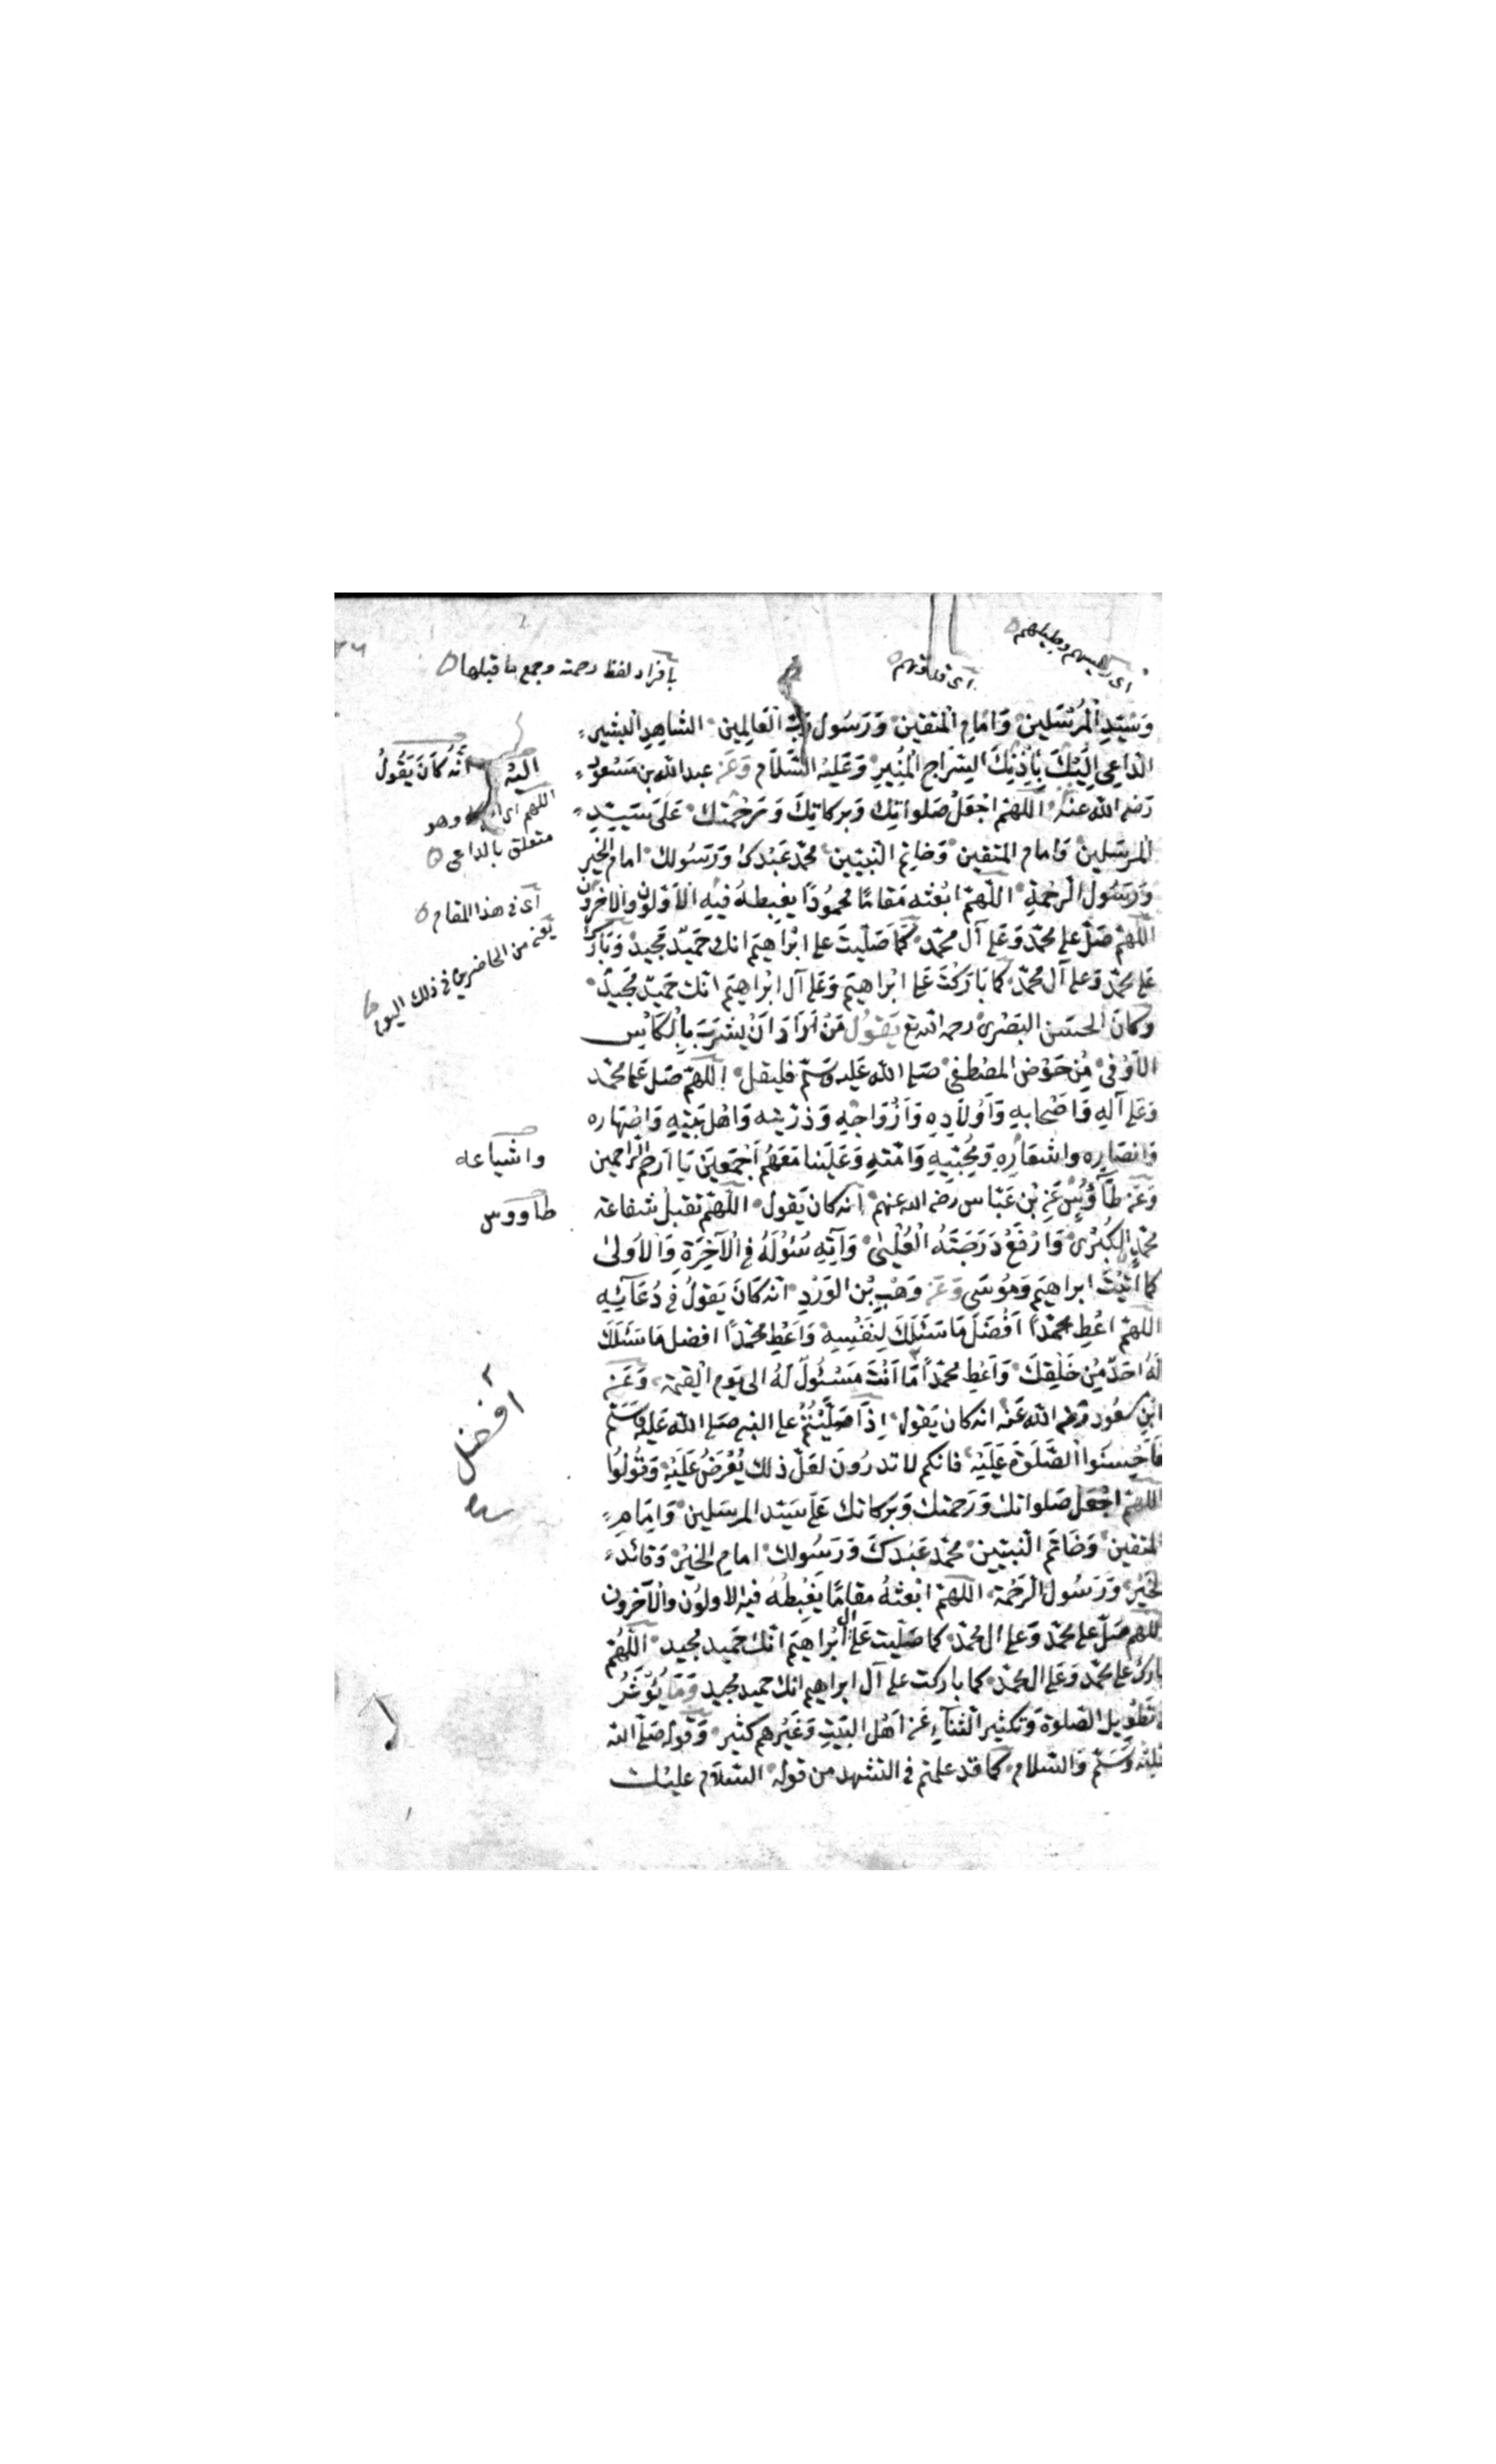 بافراد لفظ رحمته وجمع ما قبلها
وَسَيِّدِ الْمُرْسَلِينَ وَاِمَامِ الْمُتَّقِينَ وَرَسُولِ رَبِّ الْعَالَمِينَ الشَّاهِدِ الْبَشِيرِ
الدَّاعِي اِلَيْكَ بِاِذْنِكَ السِّرَاجِ الْمُنِيرِ وَعَلَيْهِ السَّلَام وَعَن عبد الله بن مَسْعُود
رَضي الله عنه اللّٰهم اجْعَلْ صَلَواتِكَ وَبَرَكَاتِكَ وَرَحْمَتَكَ عَلَى سَيِّدِ
المرسَلين وَاِمام المتقين وَخاتِم النَّبِيِّين محمّد عَبْدِكَ وَرَسُولِكَ امام الخَيْرِ
وَرَسُولِ الرَّحْمَةِ اللّٰهم ابْعَثْه مَقَامًا مَحْمُودًا يَغْبِطُهُ فِيهِ الْاَوَّلُونَ وَالْاٰخِرُونَ
اللّٰهم صَلّ على محمّد وَعَلى آل محمّد كَمَا صَلَّيتَ على ابْرَاهِيم انك حَمِيدٌ مَجِيد وَبَارِكْ
عَلى محمّد وَعلى آل محمّد كما بَارَكْتَ عَلى ابْرَاهيم وَعَلى آل ابْراهيم انّك حَمِيدٌ مَجِيدٌ
وَكانَ الحسَن البَصْرى رحمه الله تع يَقُولُ مَنْ اَرَادَ اَنْ يَشْرَبَ بِالْكَأْسِ
الْاَوْفى مِنْ حَوْضِ المصْطفى صَلى الله عَليه وَسَلّم فليقل اللّٰهم صَلّ عَلى محمّد
وَعَلى آلِهِ وَاَصْحَابِهِ وَاَوْلَادِهِ وَاَزْوَاجِهِ وَذرّيته وَاَهْل بَيْتِهِ وَاَصْهَاره
وَانصَارِه واشيَاعِهِ وَمُحِبّيهِ وَاُمَّتِهِ وَعَلَيْنا مَعَهُمْ اَجْمَعِينَ يَا اَرحَم الرَّاحِمين
وَعَن طَاوُسٍ عَنِ بْن عَبّاس رَضي الله عنهم انه كان يَقول اللّٰهم تقبل شفاعة
محمّدٍ الكُبْرى وَارْفَعْ دَرَجَتَهُ الْعُلْيٰى وَآتِهِ سُئُولَهُ فِي الْآخِرَةِ وَالْاُولىٰ
كَمَا اٰتَيْتَ ابراهيم وَمُوسَى وَعَن وَهْبِ بْن الوَرْدِ انه كَانَ يَقُولُ في دُعَائِهِ
اللّٰهم اَعْطِ محمّدًا اَفْضَلَ مَا سَئَلَكَ لِنَفْسِهِ وَاَعْطِ محمّدًا افضل مَا سَئَلَكَ
لَهُ اَحَدٌ مِنْ خَلْقِكَ وَاَعْطِ محمّدًا مَا اَنْتَ مَسْئُولٌ لَهُ الى يَوم القيمة وَعَن
ابْن مسعُود رَضي الله عَنه انه كان يَقول اِذَا صَلَّيْتُمْ على النبي صَلى الله عَليه وَسَلم
فَاَحْسِنُوا الصَّلَوةَ عَلَيْهِ فانكم لا تدرُونَ لعَلّ ذلك يُعْرَضُ عَلَيْهِ وَقُولُوا
اللّٰهم اجْعَل صَلواتك وَرَحمتك وَبَرَكاتك عَلى سَيّد المرسَلين وَاِمَامِ
المتقين وَخَاتَم النبيين محمّد عَبْدِكَ وَرَسُولك امامِ الخَيْرِ وَقائدِ
الخَيْرِ وَرَسُولِ الرَّحْمَة اللّٰهم ابْعَثْهُ مقامًا يَغْبِطُهُ فيه الاولُون وَالْآخرون
اللّٰهم صَلّ على محمّد وَعَلى ال محمّد كما صَلّيت عَلى ال ابْراهيم انّك حَميد مجيد اللّٰهُمَّ
بارك على محمّد وَعَلى ال محمّد كما باركت على آل ابراهيم انك حميد مجيد وَمَا يُؤْثَرُ
في تَطْوِيل الصَّلوة وَتكثير الثنآءِ عَن اَهْل البَيْتِ وَغَيْرهم كثير وَقوله صَلى الله
عَليه وَسَلّم وَالسَّلام كما قد علمتم في التشهد من قوله السّلام عليك
اَنّهُ كَانَ يَقُولُ
وهو
متعلق بالداعى
اى في هذا المقام
يعنى من الحاضرين في ذلك اليوم
واشياعه
طاووس
افضل